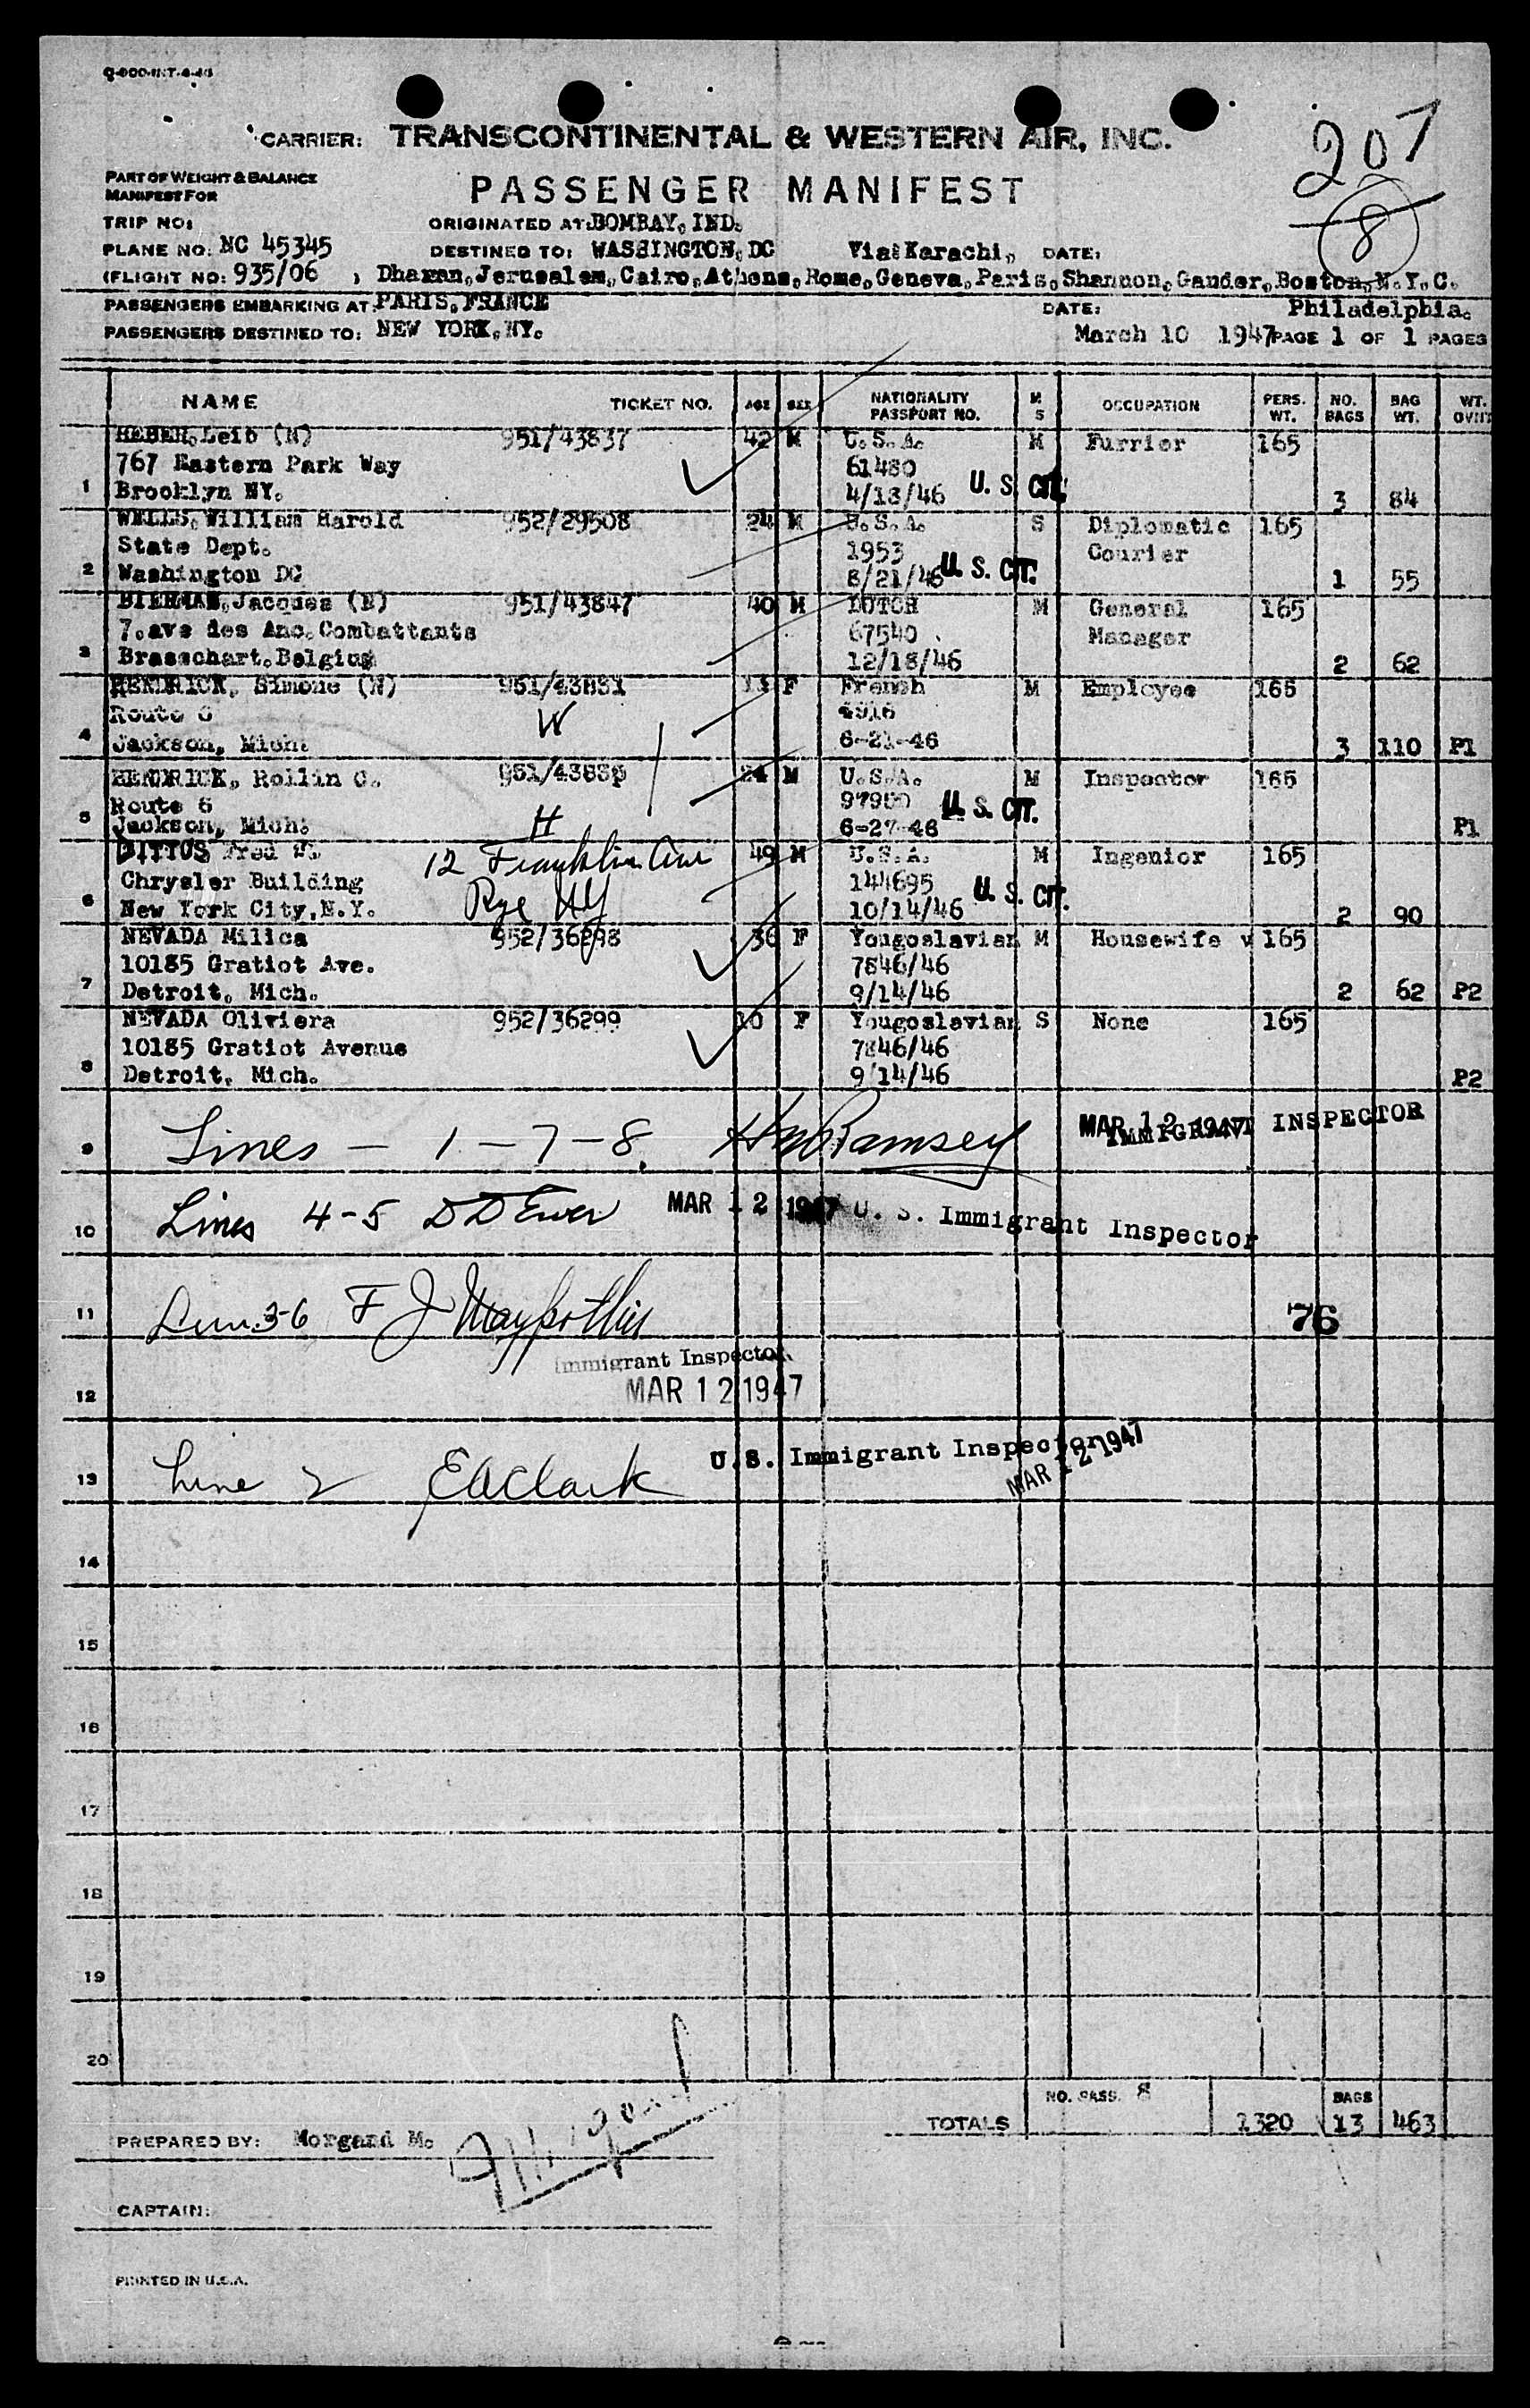 CARRIER: TRANSCONTINENTAL & WESTERN AIR, INC.
207
8
PART OF WEIGHT & BALANCE
MANIFEST FOR
PASSENGER MANIFEST
TRIP NO:
ORIGINATED AT: BOMBAY, IND.
PLANE NO: NC 45345
DESTINED TO: WASHINGTON, DC Via: Karachi, DATE:
(FLIGHT NO: 935/06 ) Dharan, Jerusalem, Cairo, Athens, Rome, Geneva, Paris, Shannon, Gander, Boston, N.Y.C.
PASSENGERS EMBARKING AT: PARIS, FRANCE DATE: Philadelphia.
PASSENGERS DESTINED TO: NEW YORK, NY. March 10 1947 PAGE 1 OF 1 PAGES
NAME TICKET NO. AGE SEX NATIONALITY PASSPORT NO. M S OCCUPATION PERS. WT. NO. BAGS BAG WT. WT. OVHT
HEBER, Leib (N) 951/43837 42 M U.S.A. M Furrier 165
767 Eastern Park Way 61480
1 Brooklyn NY. 4/18/46 U. S. CIT. 3 84
WELLS, William Harold 952/29508 24 M U.S.A. S Diplomatic 165
State Dept. 1953 Courier
2 Washington DC 8/21/46 U. S. CIT. 1 55
BIERMAN, Jacques (N) 951/43847 40 M DUTCH M General 165
7, ave des Anc. Combattants 67540 Manager
3 Brasschart, Belgium 12/18/46 2 62
HENDRICK, Simone (N) 951/43831 F French M Employee 165
Route 6 W 4916
4 Jackson, Mich. 6-21-46 3 110 P1
HENDRICK, Rollin C. 951/4383 24 M U.S.A. M Inspector 165
Route 6 97950 U. S. CIT.
5 Jackson, Mich. H 6-27-46 P1
DITTUS Fred W. 12 Franklin Ave 49 M U.S.A. M Ingenior 165
Chrysler Building 144695
6 New York City, N.Y. Rye NY 10/14/46 U. S. CIT. 2 90
NEVADA Milica 952/36298 36 F Yougoslavian M Housewife 165
10185 Gratiot Ave. 7846/46
7 Detroit, Mich. 9/14/46 2 62 P2
NEVADA Oliviera 952/36299 10 F Yougoslavian S None 165
10185 Gratiot Avenue 7846/46
8 Detroit, Mich. 9/14/46 P2
9 Lines — 1 — 7 — 8. H Ramsey MAR 12 1947 IMMIGRANT INSPECTOR
10 Lines 4-5 D D Ewer MAR 12 1947 U. S. Immigrant Inspector
11 3-6 F J 76
Immigrant Inspector
12 MAR 12 1947
13 Line 2 E A Clark U.S. Immigrant Inspector MAR 12 1947
14
15
16
17
18
19
20
NO. PASS. 8 BAGS
TOTALS 1320 13 463
PREPARED BY: Morgand M.
CAPTAIN:
PRINTED IN U.S.A.